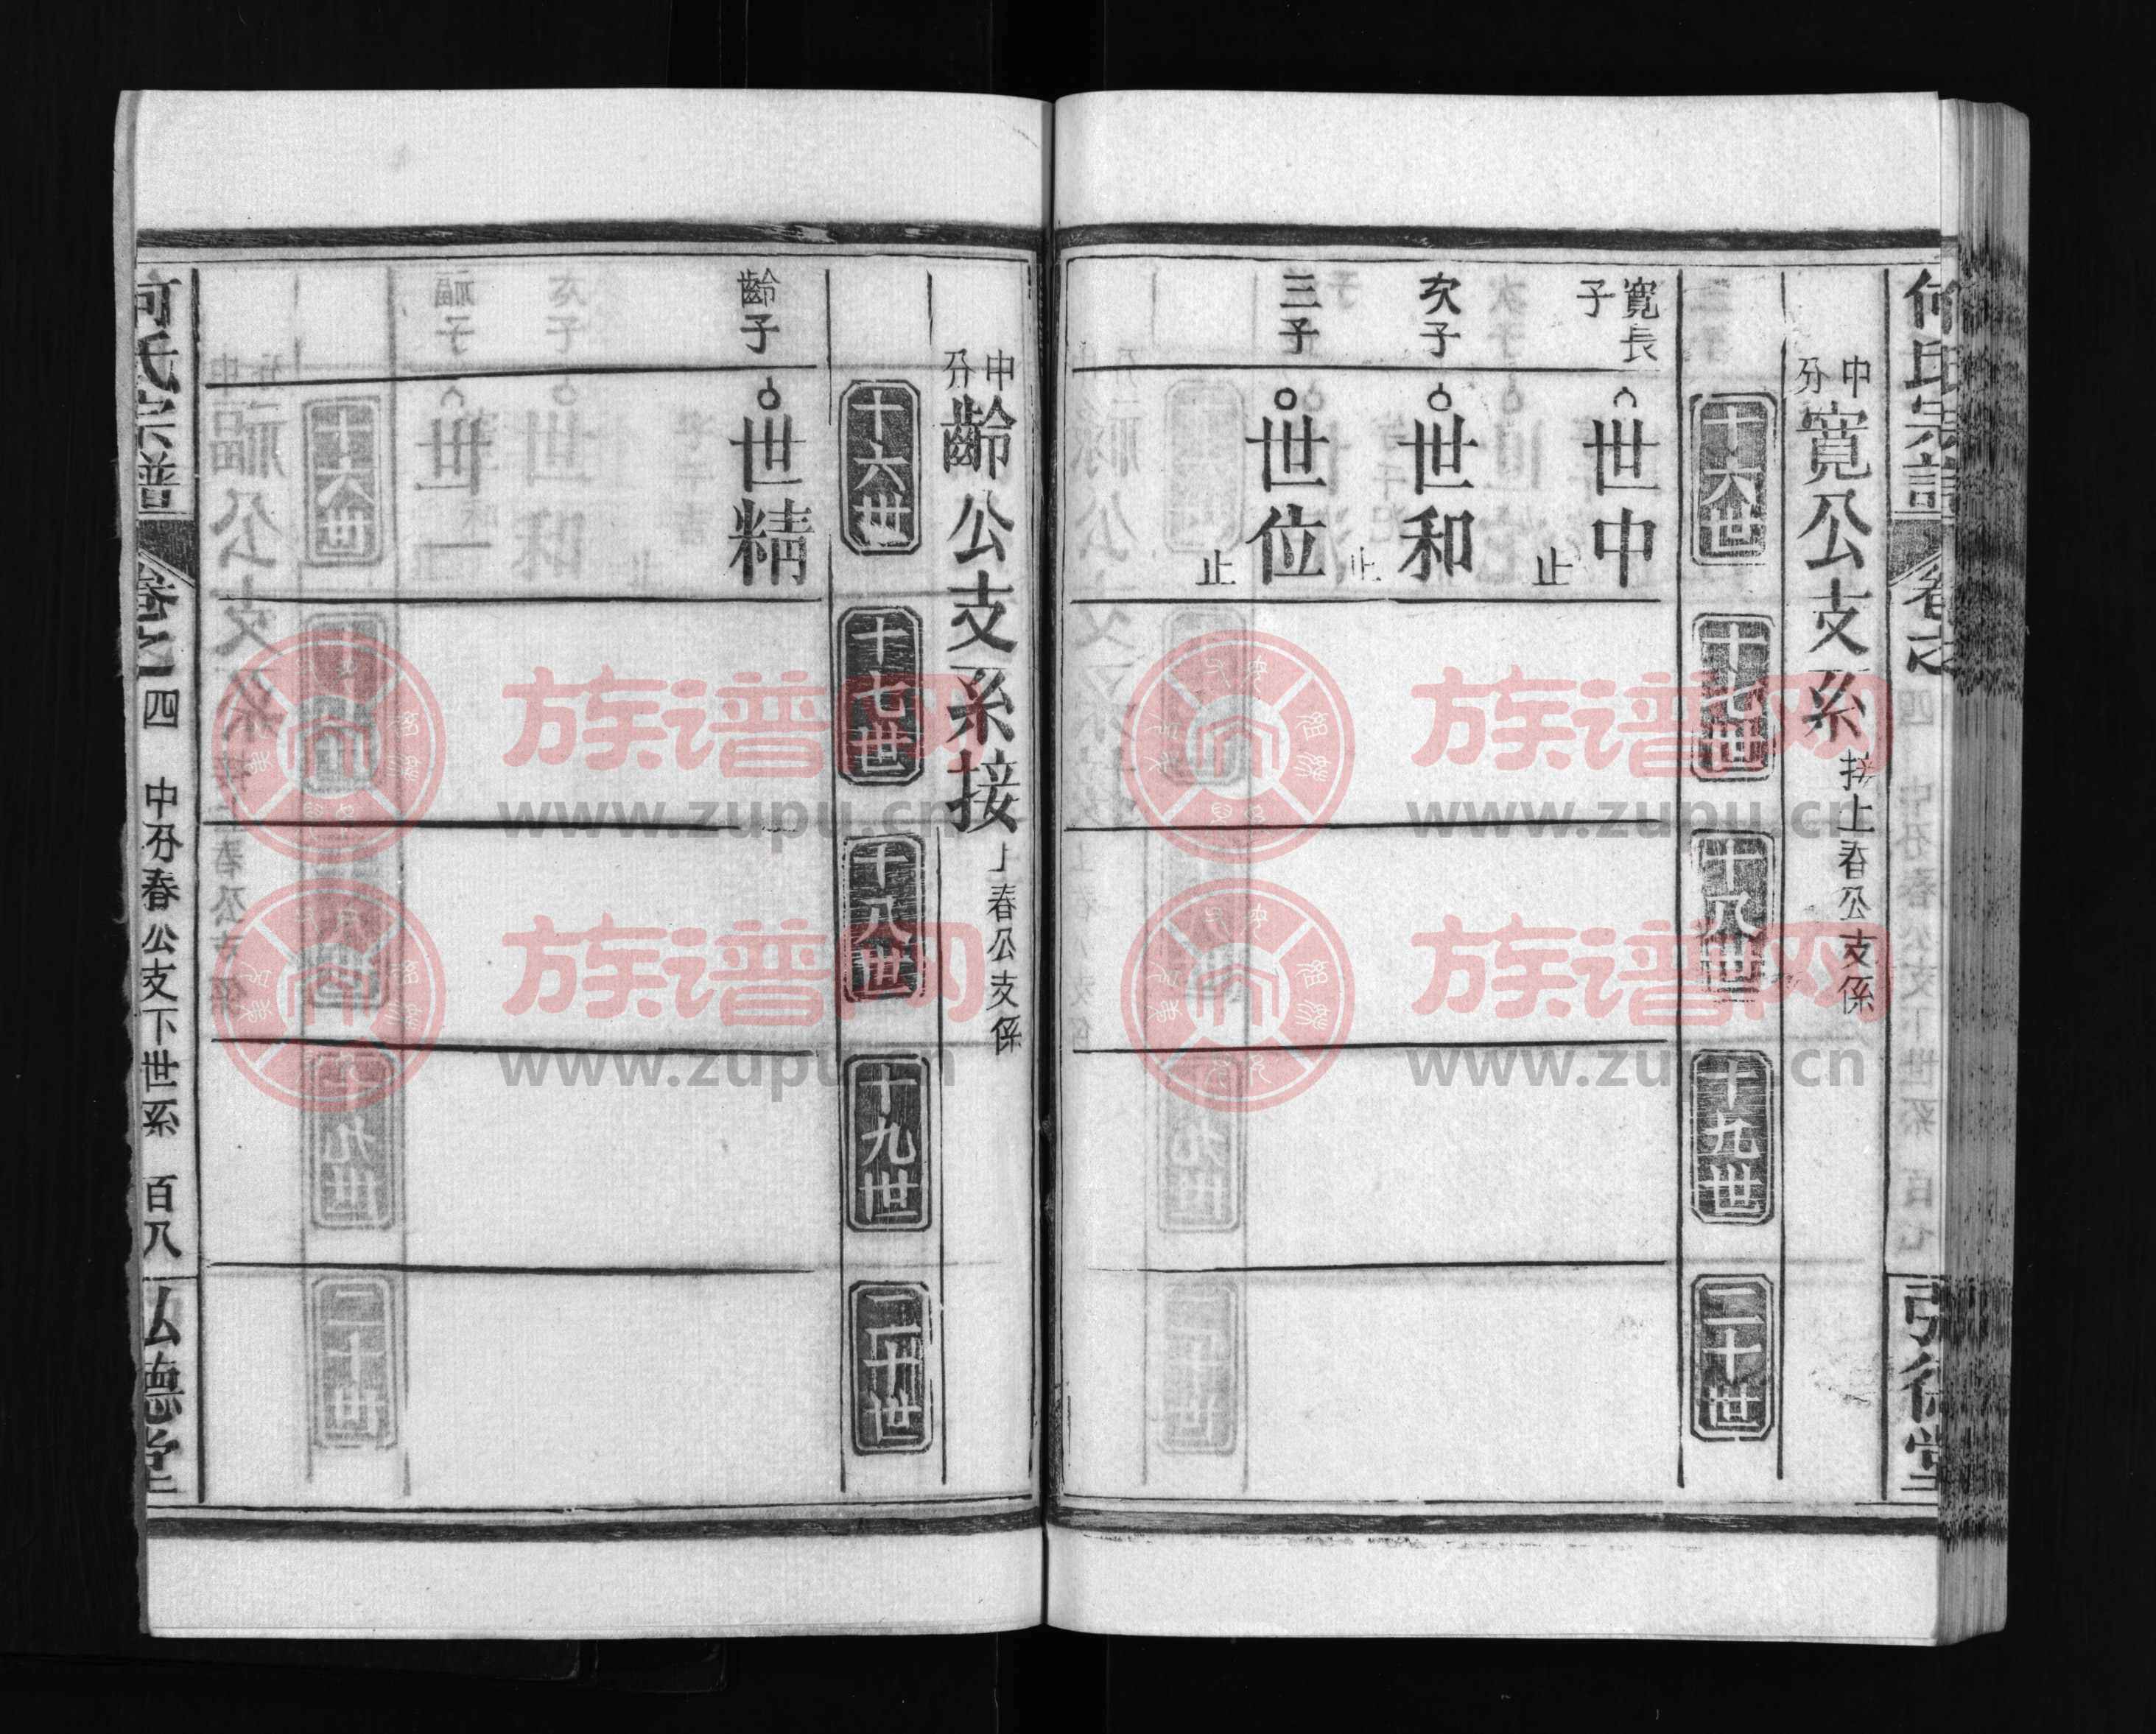 何氏宗譜
卷之
弘德堂
中分寬公支系接上春公支係
十六世
十七世
十八世
十九世
二十世
寬長子
世中
止
次子
世和
止
三子
世位
止
中分齡公支系接上春公支係
十六世
十七世
十八世
十九世
二十世
齡子
世精
何氏宗譜
卷之四
中分春公支下世系
百八
弘德堂
族谱网
www.zupu.cn
族谱网
www.zupu.cn
族谱网
www.zupu.cn
族谱网
www.zupu.cn